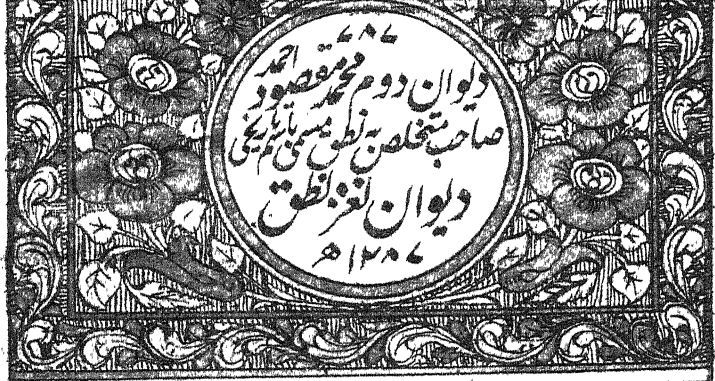 ۷۸۷
دیوان دوم محمد مقصود احمد
صاحب متخلص بہ نطق مسمی باسم تاریخی
دیوان نغز نطق
۱۲۸۷ھ